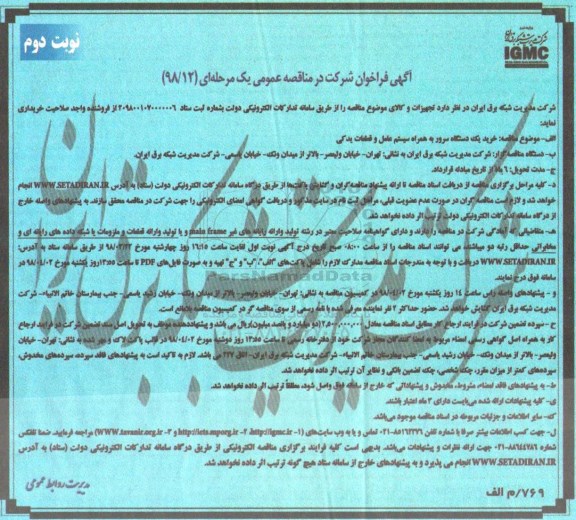 نوبت دوم
IGMC
آگهی فراخوان شرکت در مناقصه عمومی یک مرحله‌ای (۹۸/۱۲)
شرکت مدیریت شبکه برق ایران در نظر دارد تجهیزات و کالای موضوع مناقصه را از طریق سامانه تدارکات الکترونیکی دولت بشماره ثبت ستاد ۲۰۹۸۰۰۱۰۷۰۰۰۰۰۰۶ از فروشنده واجد صلاحیت خریداری
نماید:
الف- موضوع مناقصه: خرید یک دستگاه سرور به همراه سیستم عامل و قطعات یدکی
ب- دستگاه مناقصه گزار: شرکت مدیریت شبکه برق ایران به نشانی: تهران- خیابان ولیعصر- بالاتر از میدان ونک- خیابان یاسمی- شرکت مدیریت شبکه برق ایران.
ج- مدت تحویل: ۶ ماه از تاریخ مبادله قرارداد.
د- کلیه مراحل برگزاری مناقصه از دریافت اسناد مناقصه تا ارائه پیشنهاد مناقصه‌گران و گشایش پاکت‌ها از طریق درگاه سامانه تدارکات الکترونیکی دولت (ستاد) به آدرس WWW.SETADIRAN.IR انجام
خواهد شد و لازم است مناقصه‌گران در صورت عدم عضویت قبلی، مراحل ثبت نام در سایت مذکور و دریافت گواهی امضای الکترونیکی را جهت شرکت در مناقصه محقق سازند. به پیشنهادهای واصله خارج
از درگاه سامانه تدارکات الکترونیکی دولت ترتیب اثر داده نخواهد شد.
ه- متقاضیانی که آمادگی شرکت در مناقصه را دارند و دارای گواهینامه صلاحیت معتبر در رشته تولید وارائه رایانه های غیر main frame و یا تولید وارائه قطعات و ملزومات یا شبکه داده های رایانه ای و
مخابراتی حداقل رتبه دو میباشند می توانند اسناد مناقصه را از ساعت ۰۸:۰۰ صبح تاریخ درج آگهی نوبت اول لغایت ساعت ۱۶:۱۵ روز چهارشنبه مورخ ۹۸/۰۲/۲۲ از طریق سامانه ستاد به آدرس:
WWW.SETADIRAN.IR دریافت و با توجه به مندرجات اسناد مناقصه مدارک لازم را شامل پاکت‌های "الف"، "ب" و "ج" تهیه و به صورت فایل‌های PDF تا ساعت ۱۳:۵۵ روز یکشنبه مورخ ۹۸/۰۴/۰۲ در
سامانه فوق درج نمایند.
و - پیشنهادهای واصله راس ساعت ۱۴ روز یکشنبه مورخ ۹۸/۰۴/۰۲ در کمیسیون مناقصه به نشانی: تهران- خیابان ولیعصر- بالاتر از میدان ونک- خیابان رشید یاسمی- جنب بیمارستان خاتم الانبیاء- شرکت
مدیریت شبکه برق ایران گشایش خواهد شد. حضور حداکثر ۲ نفر نماینده معرفی شده با نامه رسمی از سوی مناقصه گر در کمیسیون مناقصه بلامانع است.
ح - سپرده تضمین شرکت در فرایند ارجاع کار مطابق اسناد مناقصه معادل
کار به همراه اصل گواهی رسمی امضاء مربوط به امضا کنندگان مجاز شرکت خود از دفترخانه رسمی تا ساعت ۱۳:۵۵ روز
ولیعصر- بالاتر از میدان ونک- خیابان رشید یاسمی- جنب بیمارستان خاتم الانبیاء- شرکت مدیریت شبکه برق ایران- اتاق ۲۲۷ می باشد. لازم به تاکید است به پیشنهادهای فاقد سپرده، سپرده‌های مخدوش،
سپرده‌های کمتر از میزان مقرر، چک شخصی، چک تضمین بانکی و نظایر آن ترتیب اثر داده نخواهد شد.
ط- به پیشنهادهای فاقد امضاء، مشروط، مخدوش و پیشنهاداتی که خارج از سامانه فوق واصل شود، مطلقاً ترتیب اثر داده نخواهد شد.
ی- کلیه پیشنهادات ارائه شده می‌بایست دارای ۳ ماه اعتبار باشند.
ک- سایر اطلاعات و جزئیات مربوطه در اسناد مناقصه موجود می‌باشد.
ل- جهت کسب اطلاعات بیشتر صرفا با شماره تلفن ۸۵۱۶۲۳۲۶-۰۲۱ تماس و یا به وب سایت‌های (۱- http://igmc.ir ۲- http://iets.mporg.ir و ۳- WWW.tavanir.org.ir) مراجعه فرمایید. ضمنا تلفکس
۸۸۶۴۴۷۸۶-۰۲۱ جهت ارائه نظرات و پیشنهادات می‌باشد. بدیهی است کلیه فرایند برگزاری مناقصه الکترونیکی از طریق درگاه سامانه تدارکات الکترونیکی دولت (ستاد) به آدرس
WWW.SETADIRAN.IR انجام می پذیرد و به پیشنهادهای خارج از سامانه ستاد هیچ گونه ترتیب اثر داده نخواهد شد.
مدیریت روابط عمومی
۷۶۹/م الف
ParsNamadData